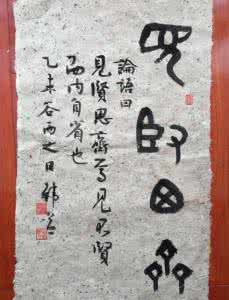 見賢思齊
論語曰
見賢思齊焉見不賢
而内自省也
乙未谷雨之日